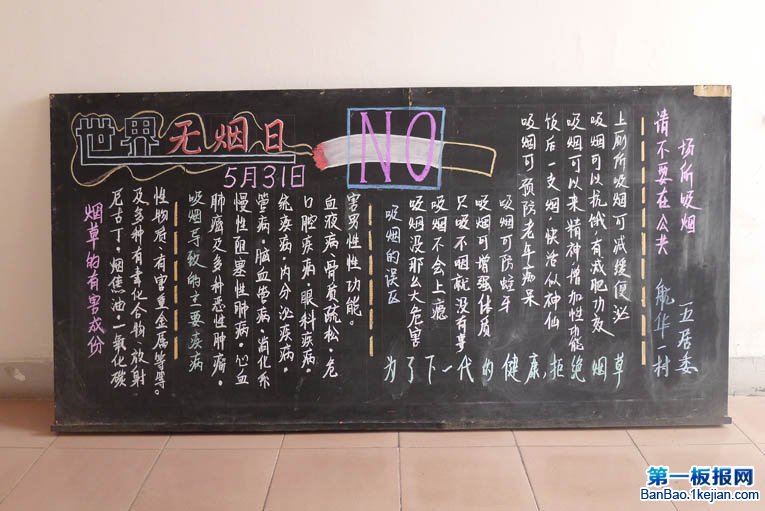 世界无烟日
5月31日
NO
烟草的有害成份
尼古丁·烟焦油·一氧化碳
及多种有毒化合物、放射
性物质、有害重金属等等。
吸烟导致的主要疾病
肺癌及多种恶性肿瘤。
慢性阻塞性肺病·心血
管病·脑血管病·消化系
统疾病·内分泌疾病·
口腔疾病·眼科疾病·
血液病、骨质疏松·危
害男性性功能。
吸烟的误区
吸烟没那么大危害
吸烟不会上瘾
只吸不咽就没有事
吸烟可增强体质
吸烟可防蛀牙
吸烟可预防老年痴呆
饭后一支烟·快活似神仙
吸烟可以来精神增加性功能
吸烟可以抗饿有减肥功及
上厕所吸烟可减缓便泌
为了下一代的健康,拒绝烟草
请不要在公共
场所吸烟
航华一村
一五居委
第一板报网
BanBao.1kejian.com